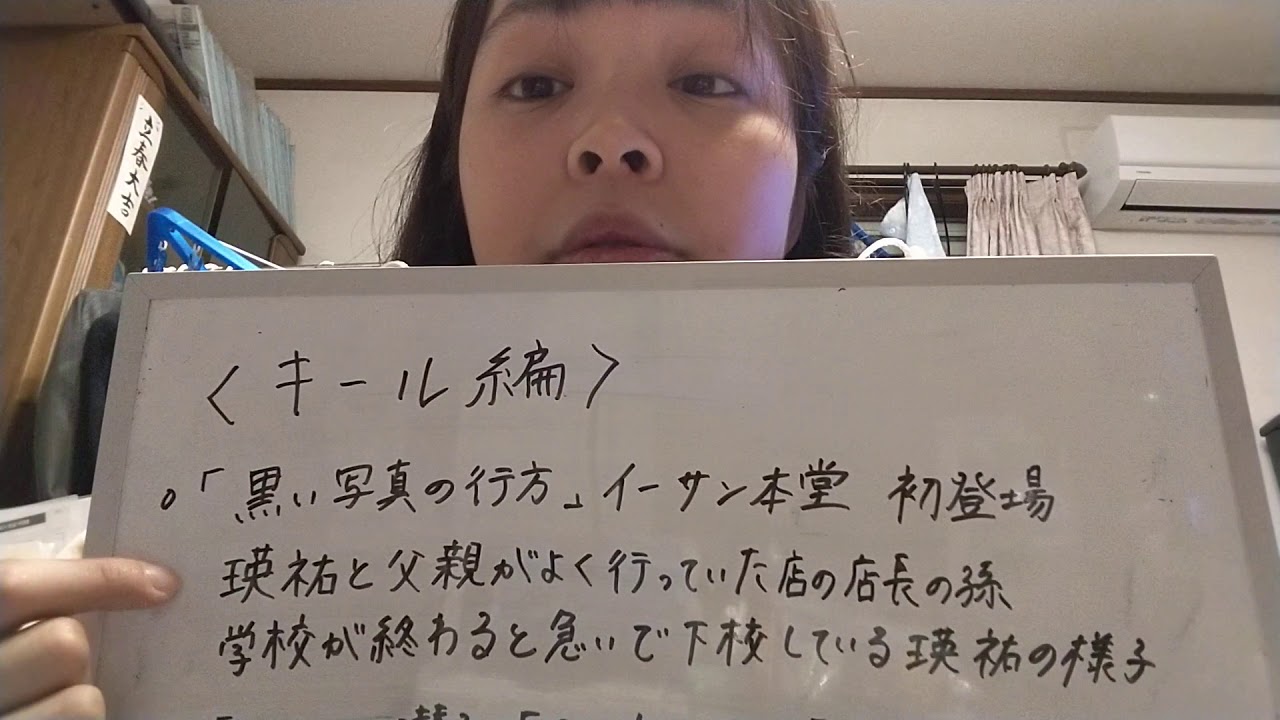 立春大吉
〈キール編〉
。「黒い写真の行方」イーサン本堂 初登場
瑛祐と父親がよく行っていた店の店長の孫
学校が終わると急いで下校している瑛祐の様子